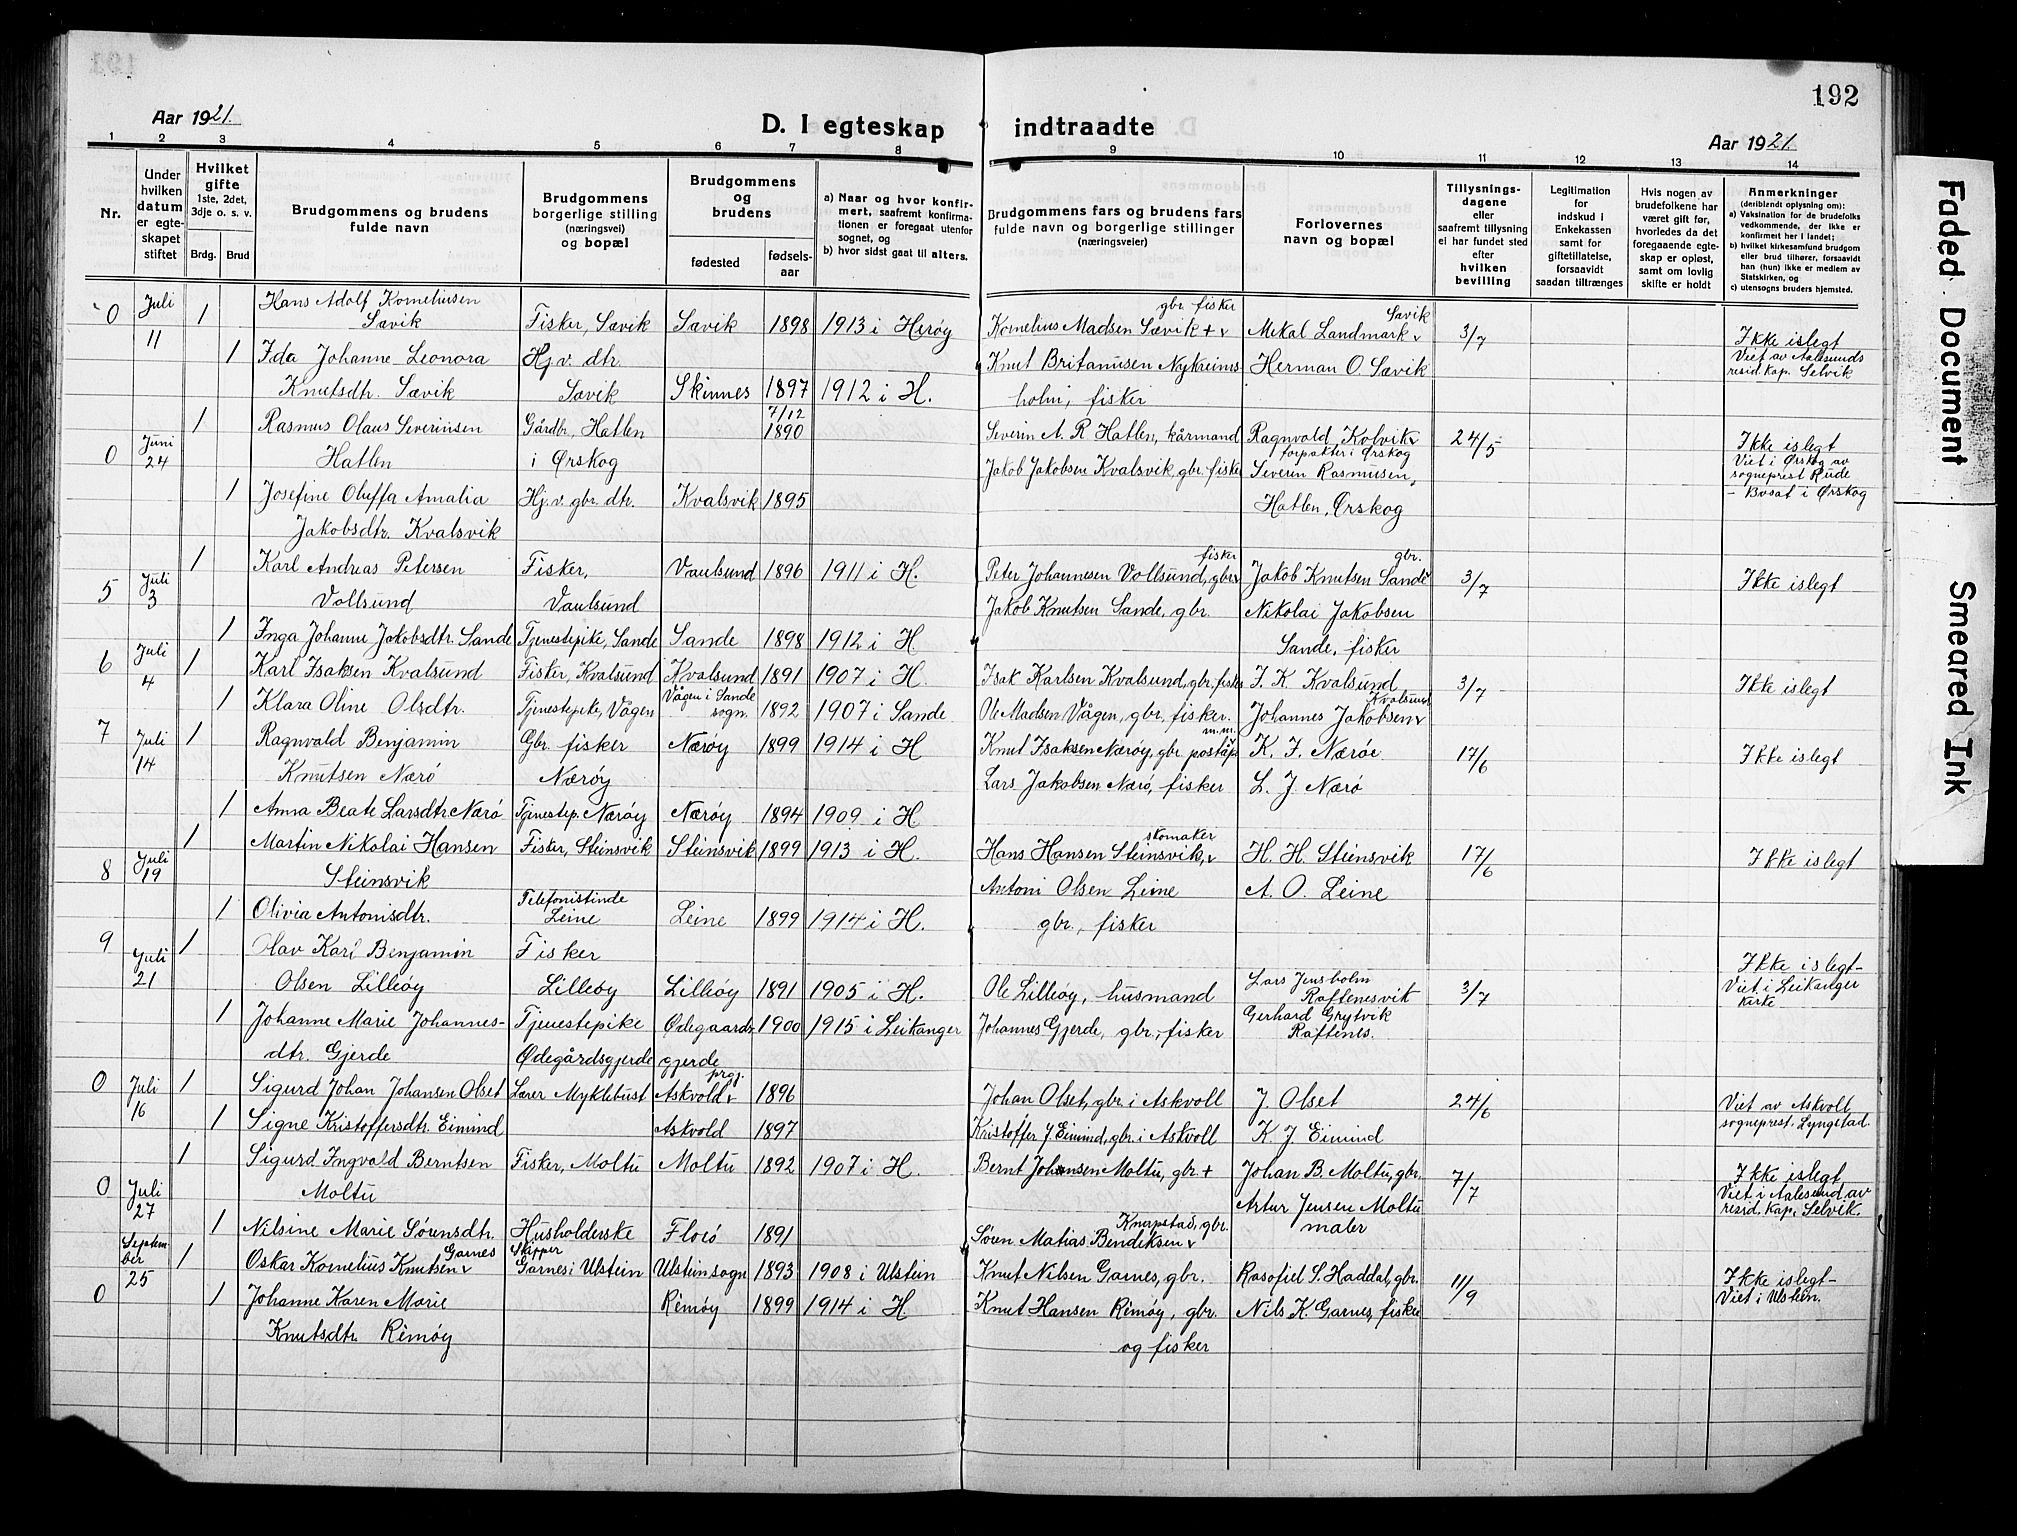 192
Aar 1921.
D. I egteskap indtraadte
Aar 1921.
1 2 3 4 5 6 7 8 9 10 11 12 13 14
Nr.
Under
hvilken
datum
er egte-
skapet
stiftet
Hvilket
gifte
1ste, 2det,
3dje o. s. v.
Brdg. Brud
Brudgommens og brudens
fulde navn
Brudgommens
borgerlige stilling
(næringsvei)
og bopæl
Brudgommens
og
brudens
fødested
fødsels-
aar
a) Naar og hvor konfir-
mert, saafremt konfirma-
tionen er foregaat utenfor
sognet, og
b) hvor sidst gaat til alters.
Brudgommens fars og brudens fars
fulde navn og borgerlige stillinger
(næringsveier)
Forlovernes
navn og bopæl
Tillysnings-
dagene
eller
saafremt tillysning
ei har fundet sted
efter
hvilken
bevilling
Legitimation
for
indskud i
Enkekassen
samt for
giftetillatelse,
forsaavidt
saadan tiltrænges
Hvis nogen av
brudefolkene har
været gift før,
hvorledes da det
foregaaende egte-
skap er opløst,
samt om lovlig
skifte er holdt
Anmerkninger
(deriblandt oplysning om):
a) Vaksination for de brudefolks
vedkommende, der ikke er
konfirmert her i landet;
b) hvilket kirkesamfund brudgom
eller brud tilhører, forsaavidt
han (hun) ikke er medlem av
Statskirken, og
c) utensogns bruders hjemsted.
0 Juli 11 1 Hans Adolf Korneliusen
Sævik Fisker, Sævik Sævik 1898 1913 i Herøy gbr. fisker
Kornelius Madsen Sævik + v Sævik
Mekal Landmark v 3/7 Ikke islegt
1 Ida Johanne Leonora Hj.v. dtr. Knut Britanusen Nykreims Herman O. Sævik Viet av Aalesunds
resid. kap. Selvik
Knutsdtr. Sævik Sævik Skinnes 1897 1912 i H. holm, fisker
0 Juni 24 1 Rasmus Olaus Severinsen Gårdbr, Hatlen 7/12
1890 Severin A. R. Hatlen, kårmand Ragnvald Kolvik v 24/5 Ikke islegt
Hatlen i Ørskog Jakob Jakobsen Kvalsvik, gbr. fisker forpakter i Ørskog
Severin Rasmusen, Viet i Ørskog av
sogneprest Rude
1 Josefine Oluffa Amalia Hj.v. gbr. dtr. Kvalsvik 1895 Hatlen, Ørskog – Bosat i Ørskog
Jakobsdtr. Kvalsvik
5 Juli 3 1 Karl Andreas Petersen Fisker, Vaulsund 1896 1911 i H. fisker
Peter Johannesen Vollsund, gbr. v gbr.
Jakob Knutsen Sande v 3/7 Ikke islegt
Vollsund Vaulsund Jakob Knutsen Sande, gbr. Nikolai Jakobsen
1 Inga Johanne Jakobsdtr. Sande Tjenestepike, Sande Sande 1898 1912 i H. Sande, fisker
6 Juli 4 1 Karl Isaksen Kvalsund Fisker, Kvalsund Kvalsund 1891 1907 i H. Isak Karlsen Kvalsund, gbr. fisker I. K. Kvalsund 3/7 Ikke islegt
1 Klara Oline Olsdtr. Tjenestepike, Vågen Vågen i Sande
sogn. 1892 1907 i Sande Ole Madsen Vågen, gbr, fisker. Kvalsund
Johannes Jakobsen v
7 Juli 14 1 Ragnvald Benjamin Gbr. fisker Nærøy 1899 1914 i H m.m.
Knut Isaksen Nærøy, gbr. poståp K. I. Nærøe 17/6 Ikke islegt
Knutsen Nærø Nærøy Lars Jakobsen Nærø, fisker L. J. Nærø
1 Anna Beate Larsdtr. Nærø Tjenestep. Nærøy Nærøy 1894 1909 i H
8 Juli 19 1 Martin Nikolai Hansen Fisker, Steinsvik Steinsvik 1899 1913 i H. skomaker
Hans Hansen Steinsvik, v H. H. Steinsvik 17/6 Ikke islegt
Steinsvik Antoni Olsen Leine A. O. Leine
1 Olivia Antonisdtr. Telefonistinde
Leine Leine 1899 1914 i H. gbr., fisker
9 Juli 21 1 Olav Karl Benjamin Fisker Ikke islegt–
Olsen Lilleøy Lilleøy Lilleøy 1891 1905 i H. Ole Lilleøy, husmand Lars Jensholm
Raftenesvik 3/7 Viet i Leikanger
kirke
1 Johanne Marie Johannes- Tjenestepike Ødegaards- 1900 1915 i Leikanger Johannes Gjerde, gbr., fisker Gerhard Grytvik
Raftenes.
dtr. Gjerde Ødegårdsgjerde gjerde
0 Juli 16 1 Sigurd Johan Johansen Olset Lærer Myklebust prgj.
Askvold v 1896 Johan Olset, gbr. i Askvoll J. Olset 24/6 Viet av Askvoll
sogneprest. Lyngstad.
1 Signe Kristoffersdtr. Eimind Askvold 1897 Kristoffer J. Eimind, gbr. i Askvoll K. J. Eimind
0 Juli 27 1 Sigurd Ingvald Berntsen Fisker, Moltu Moltu 1892 1907 i H. Bernt Johansen Moltu, gbr. + Johan B. Moltu, gbr. 7/7 Ikke islegt
Moltu Artur Jensen Moltu
maler Viet i Aalesund av
resid. kap. Selvik.
1 Nilsine Marie Sørensdtr. Husholderske Florø 1891 Knapstad, gbr.
Søren Matias Bendiksen v
0 September 25 1 Garnes
Oskar Kornelius Knutsen v Skipper
Garnes i Ulstein Ulstein sogn 1893 1908 i Ulstein Knut Nilsen Garnes, gbr. Rasofiel S. Haddal, gbr. 11/9 Ikke islegt–
Viet i Ulstein.
1 Johanne Karen Marie Rimøy 1899 1914 i H Knut Hansen Rimøy, gbr. Nils K. Garnes, fisker
Knutsdtr. Rimøy og fisker
Faded Document
Smeared Ink